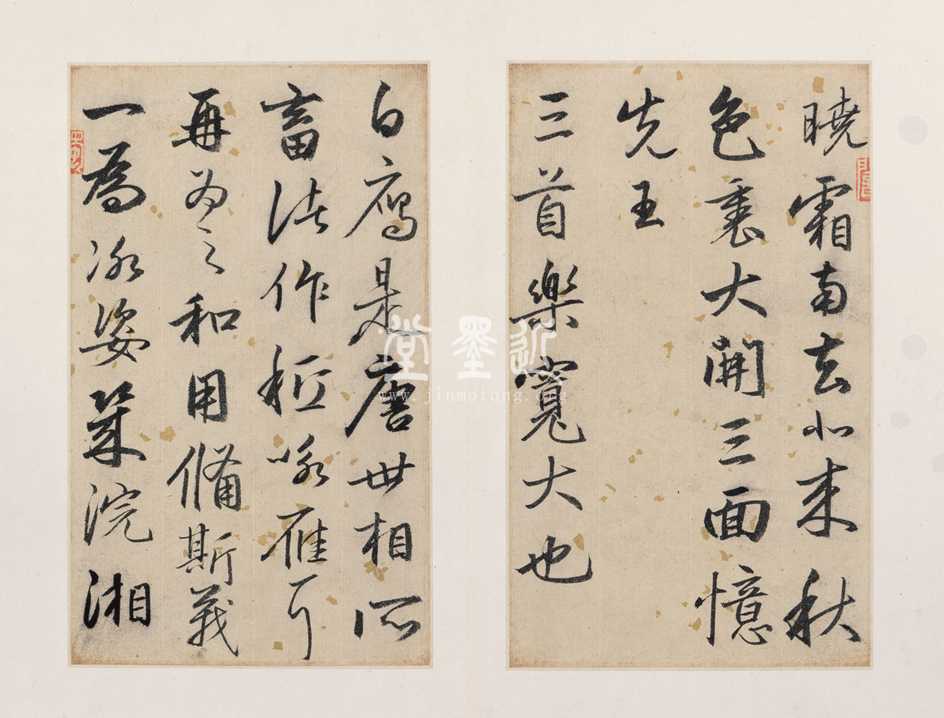 曉霜南去北來秋
色裏大開三面憶
先王
三首樂寬大也
白鴈是唐世相所
畜法作咏雁耳
再為之和用備斯義
一為冰姿浣湘
近墨堂
www.jinmotang.org